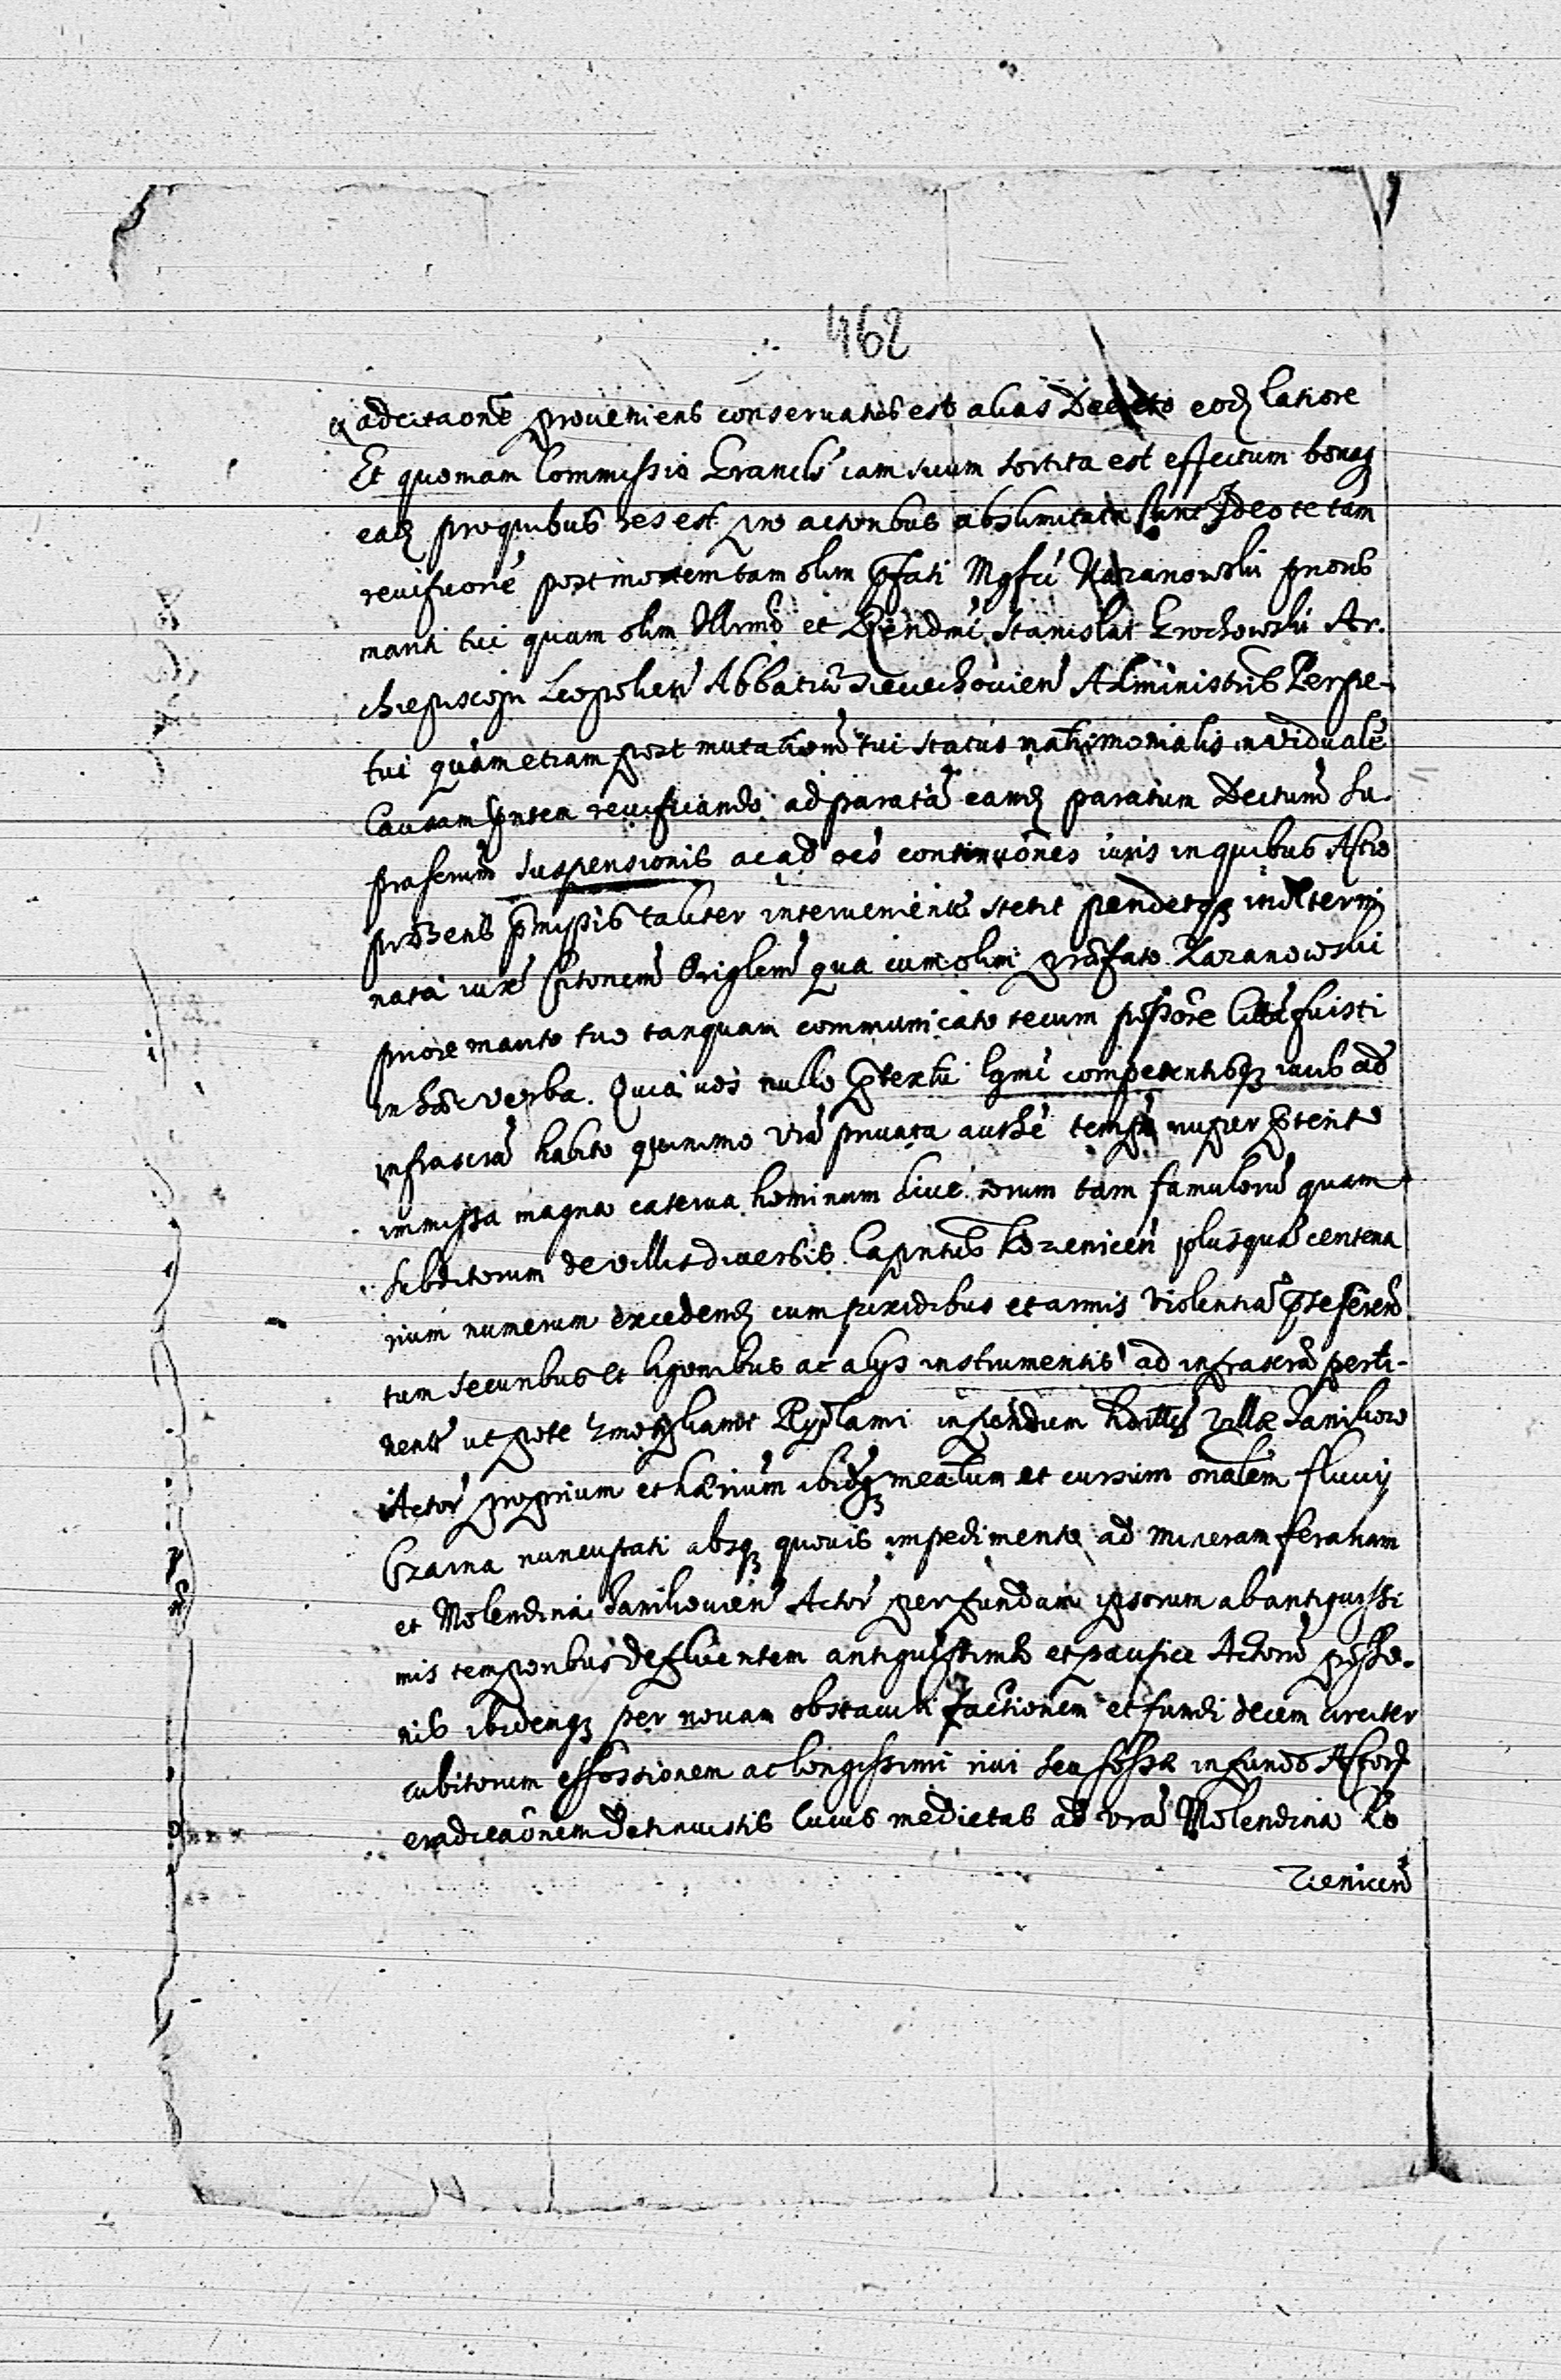 462
adcitaone proveniens conservatus est alias Decreto eod latiore
Et quoniam Commissio Grancls iam suum sortita est effectum bonaq
ead pro quibus res est pro actoribus absumitata sunt Ideo te tam
post mortem tam olim pfati Mgfci Kazanowski prioris
mariti tui quam olim Illrmi et Rendmi Stanislai Grochowski Ar-
chiepiscopi Leopolien Abbatiæ Sieciechovien Administris Perpe-
tui quam etiam post mutationem tui status matrimonialis in vidualē
Causam pntem revificando ad paratā eamd paratum Dectum Su-
prascrium suspensionis ac ad oēs continuōnes iuris in quibus Actio
præsens pmissis taliter intervenientb stetit pendetq indetermi
nata iuxa Citonem Origlem qua cum olim præfato Kazanowski
priore marito tuo tanquam communicato tecum possore Citata fuisti
in hæc verba. Quia vos nullo ptextu lgmi competentisq iuris ad
infrascra habito quinimo vra privata authē tempe nuper pterito
immissa magna caterva hominum diversorum tam famuloru quam
subditorum de villis diversis Capntus Kozienicen plusquā centena
rium numerum excedend cum pixidibus et armis violentia pteseren
tum securibus et ligonibus ac alys instrumentis ad infrascra perti-
nentb utpote z motykami Rydlami in fundum hæditæ villæ Janikow
Actor proprium et hærium ibidq meatum et cursum onalem fluvij
Czarna nuncupati absq quovis impedimento ad mineram ferariam
et Molendina Janikovien Actor per fundum ipsorum ab antiquissi
mis temporibus defluentem antiquissimæ et pacifice Actoru posses-
nis ibidemq per novam obstaculi factionem et fundi decem circiter
cubitorum effossionem ac longissimi rivi seu fossæ in fundo Actor
eradicaōnem detinuistis Cuius medietas ad vra Molendina Ko
zienicen